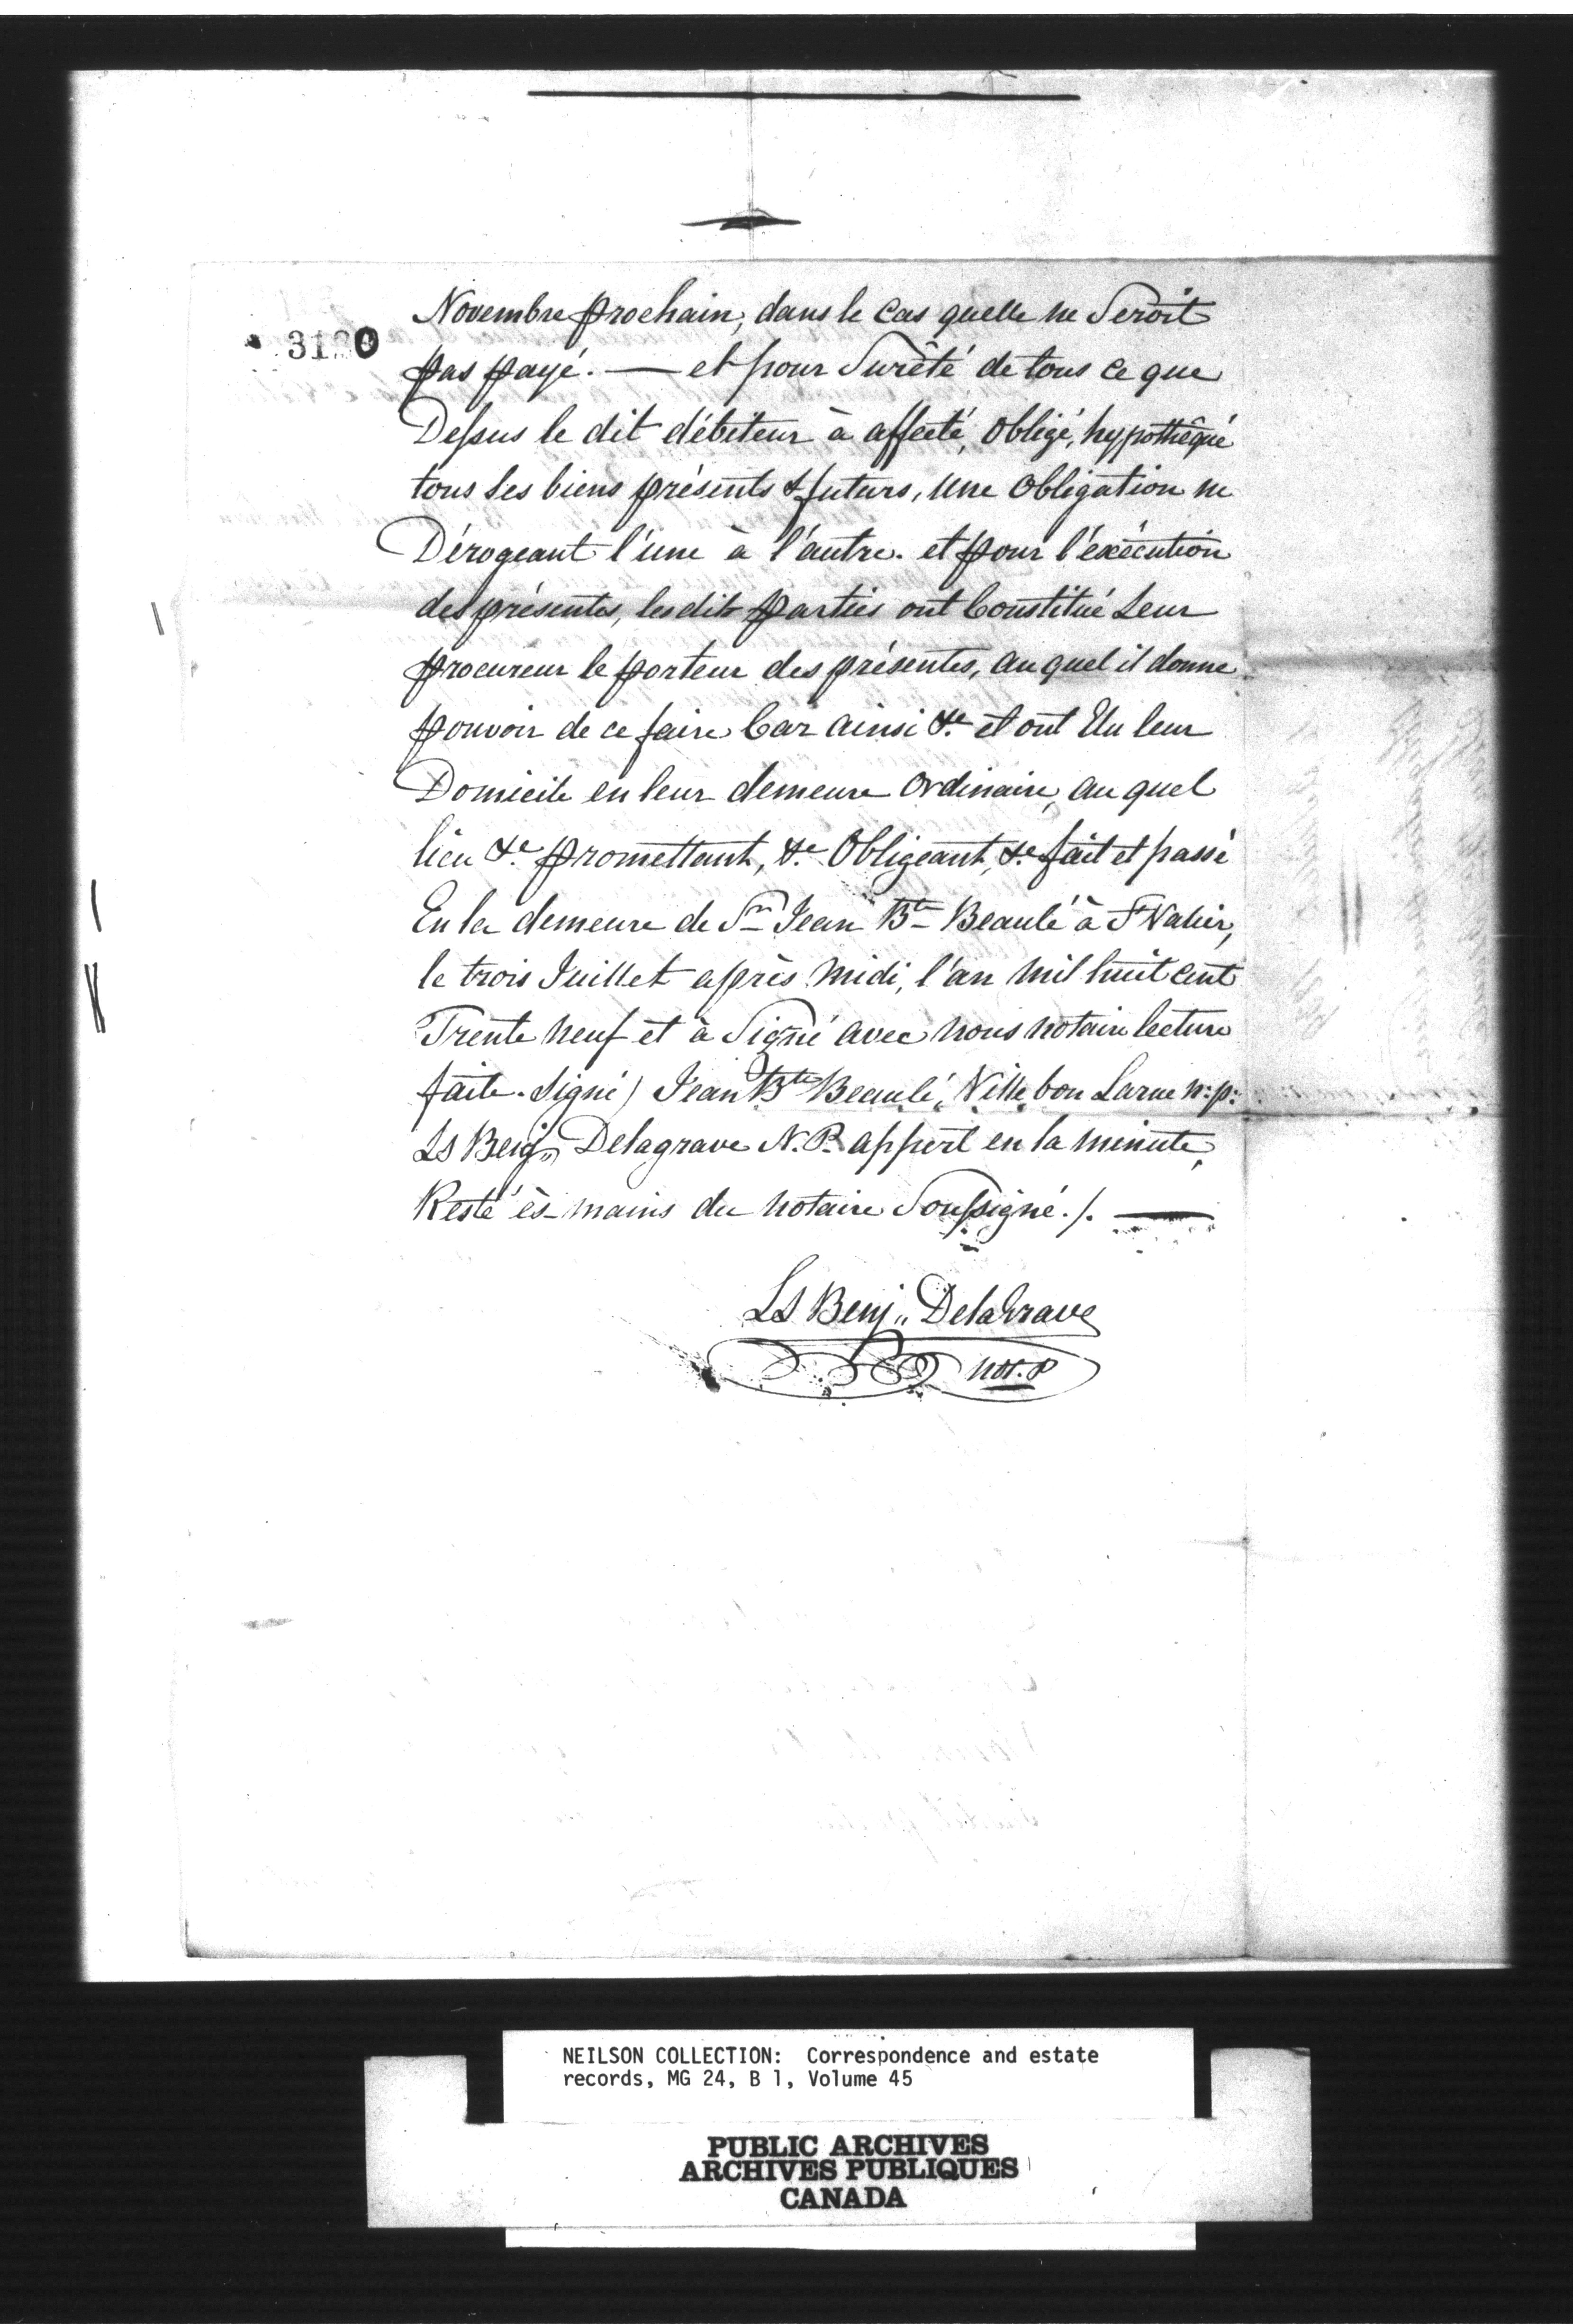 3120
Novembre prochain, dans le Cas quelle ne Seroit
pas payé. — et pour Surêté de tous ce que
Dessus le dit débiteur à affecté, obligé, hypothêqué
tous ses biens présents & futurs, une Obligation ne
Dérogeant l'une à l'autre. et pour l'exécution
des présentes, lesdits parties ont Constitué Leur
procureur le porteur des présentes, au quel il donne
pouvoir de ce faire Car ainsi &c et ont Elu leur
Domicile en leur demeure Ordinaire, au quel
lieu &c promettant, &c Obligeant, &c fait et passé
En la demeure de Sr Jean Bte Beaulé à St Valier,
le trois Juillet après midi, l'an mil huit cent
Trente neuf et à Signé avec nous notaire lecture
faite. Signé) Jean Bte Beaulé, Ville bon Larue n:p:
Ls Benj" Delagrave N.P. appert en la minute,
Resté ès-mains du notaire Soussigné./. —
Ls Benj" DelaGrave
not. P
NEILSON COLLECTION: Correspondence and estate
records, MG 24, B 1, Volume 45
PUBLIC ARCHIVES
ARCHIVES PUBLIQUES
CANADA